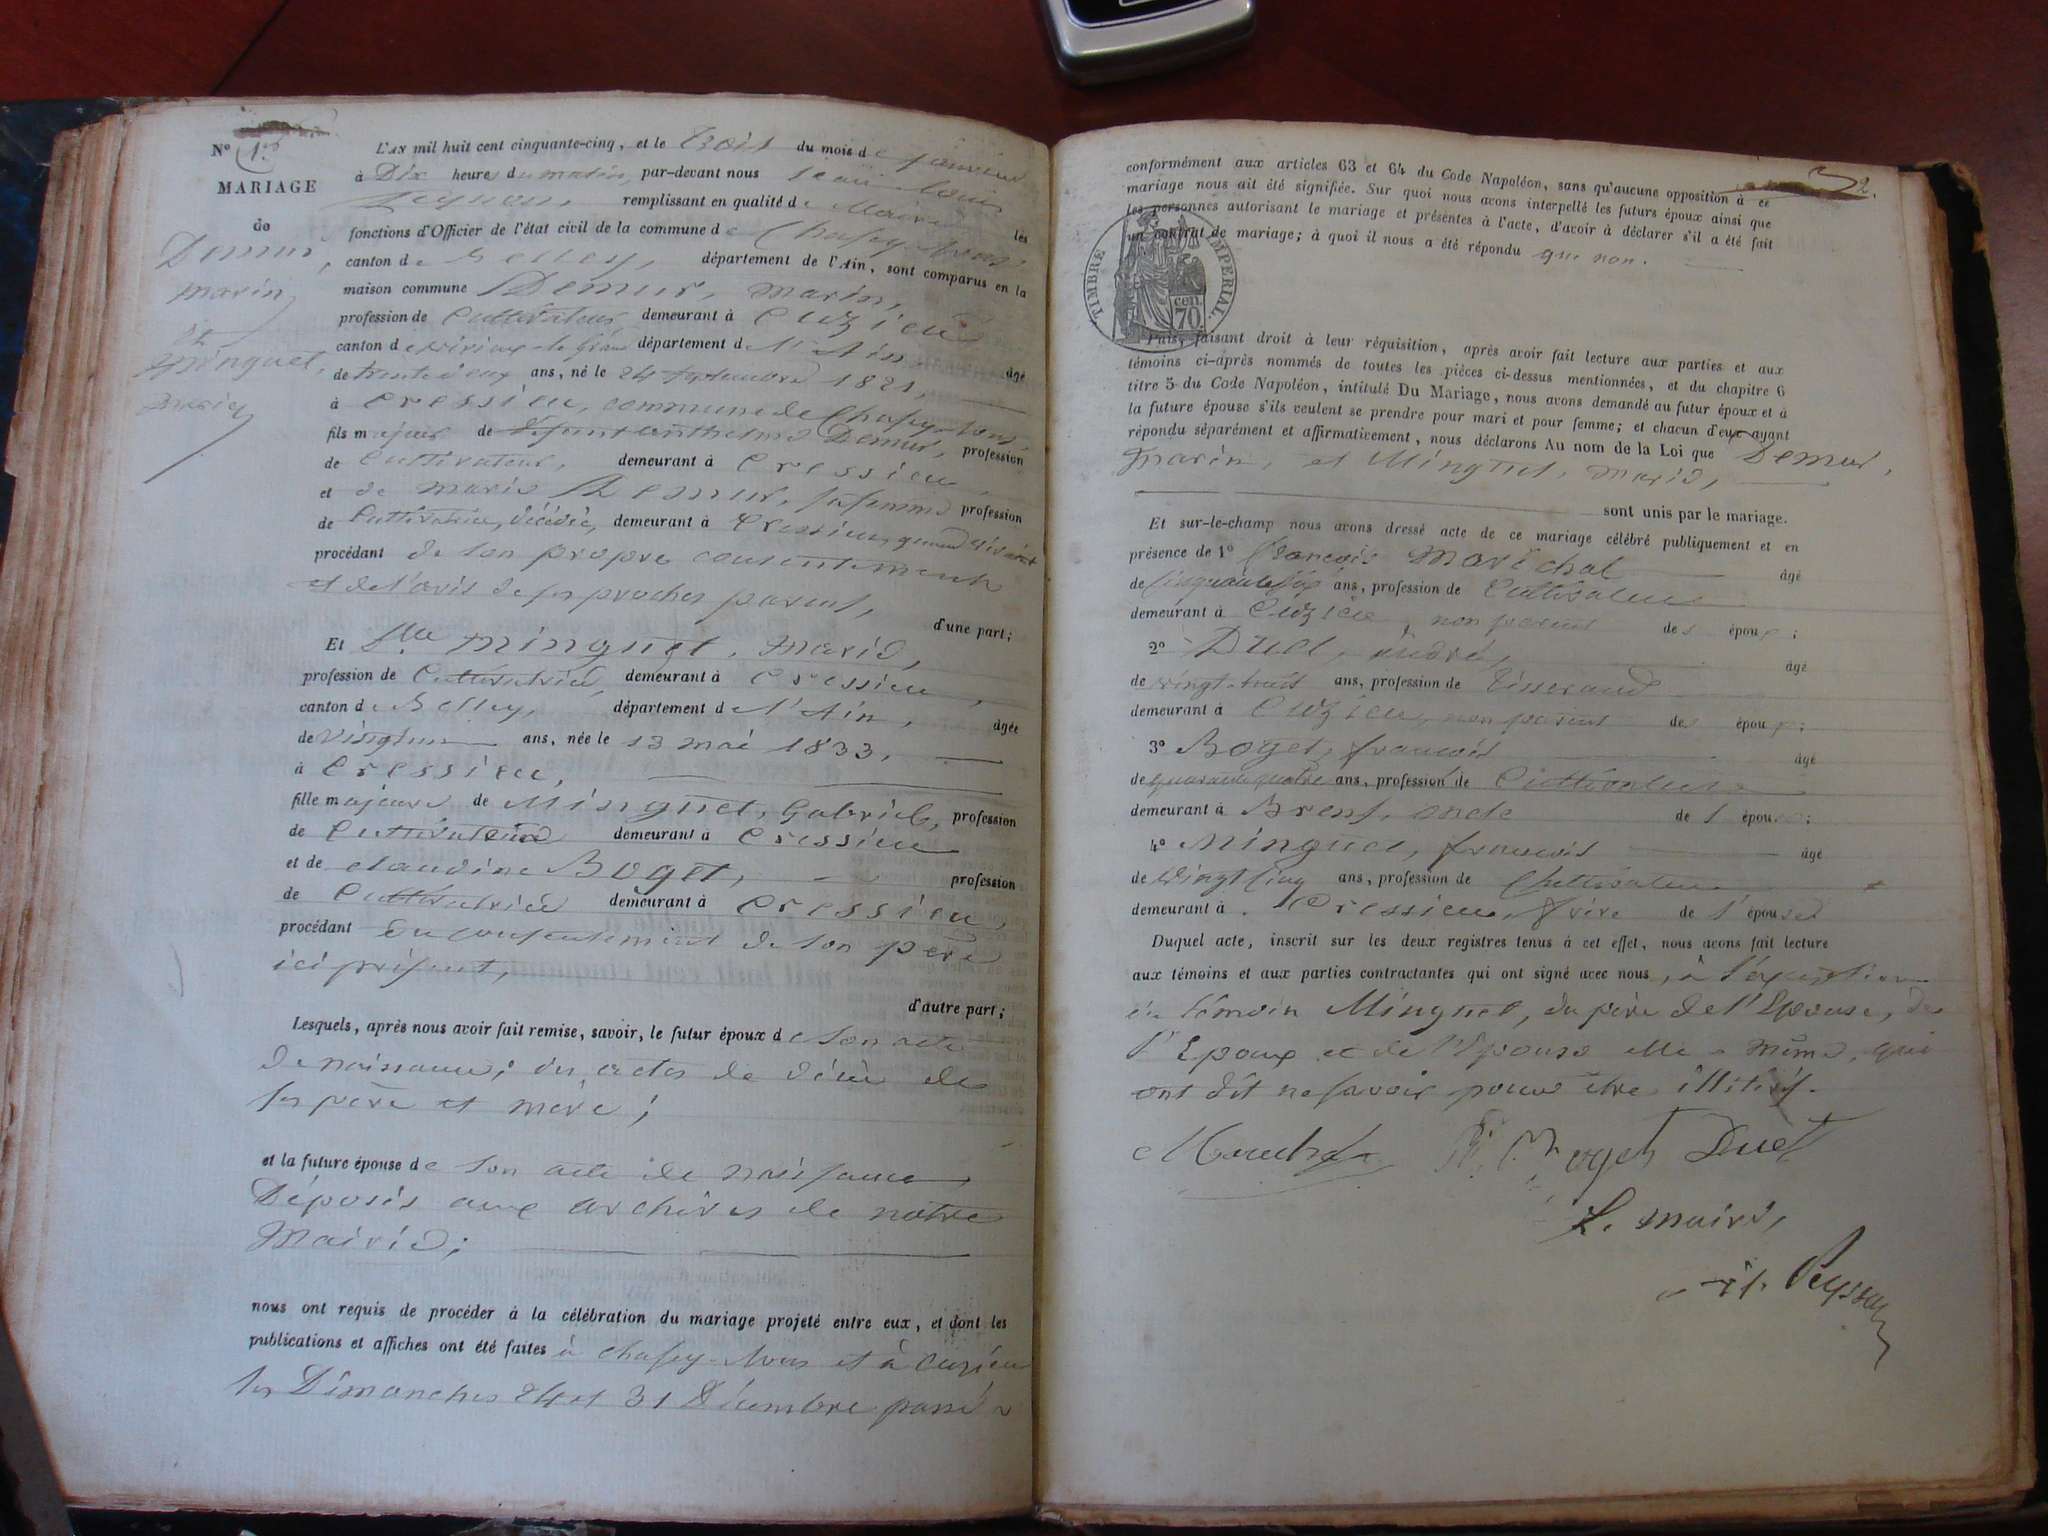 N° 1.
MARIAGE
de
Demur,
Marin,
et
Minguet,
Marie
L'AN mil huit cent cinquante-cinq, et le trois du mois de janvier
à Dix heures du matin, par-devant nous Jean Louis
remplissant en qualité de Maire les
fonctions d'Officier de l'état civil de la commune de Chasey-Bons
canton de Belley, département de l'Ain, sont comparus en la
maison commune Demur, Marin,
profession de Cultivateur demeurant à Cuzieu
canton de Virieux-le-Grand département de l'Ain, âgé
de trente deux ans, né le 24 septembre 1821,
à Cressieu, commune de Chasey-Bons,
fils majeur de défunt anthelme Demur, profession
de Cultivateur, demeurant à Cressieu,
et de marie Demur, sa femme profession
de Cultivatrice, décédée, demeurant à Cressieu, quand vivait
procédant de son propre consentement
et de l'avis de ses proches parents,
d'une part;
Et Mlle Minguet, Marie,
profession de Cultivatrice, demeurant à Cressieu,
canton de Belley, département de l'Ain, âgée
de vingt un ans, née le 13 mai 1833,
à Cressieu,
fille majeure de Minguet, Gabriel, profession
de Cultivateur demeurant à Cressieu
et de claudine Boget, profession
de Cultivatrice demeurant à Cressieu,
procédant du consentement de son père
ici présent,
d'autre part;
Lesquels, après nous avoir fait remise, savoir, le futur époux de son acte
de naissance; des actes de décès de
ses père et mère;
et la future épouse de son acte de naissance
Déposés aux archives de notre
Mairie;
nous ont requis de procéder à la célébration du mariage projeté entre eux, et dont les
publications et affiches ont été faites à Chasey-Bons et à Cuzieu
les Dimanches 24 et 31 Décembre passé
2.
conformément aux articles 63 et 64 du Code Napoléon, sans qu'aucune opposition à ce
mariage nous ait été signifiée. Sur quoi nous avons interpellé les futurs époux ainsi que
les personnes autorisant le mariage et présentes à l'acte, d'avoir à déclarer s'il a été fait
un contrat de mariage; à quoi il nous a été répondu que non.
TIMBRE IMPERIAL.
70 cen.
Puis, faisant droit à leur réquisition, après avoir fait lecture aux parties et aux
témoins ci-après nommés de toutes les pièces ci-dessus mentionnées, et du chapitre 6
titre 5 du Code Napoléon, intitulé Du Mariage, nous avons demandé au futur époux et à
la future épouse s'ils veulent se prendre pour mari et pour femme; et chacun d'eux ayant
répondu séparément et affirmativement, nous déclarons Au nom de la Loi que Demur,
Marin, et Minguet, Marie,
sont unis par le mariage.
Et sur-le-champ nous avons dressé acte de ce mariage célébré publiquement et en
présence de 1° François Maréchal âgé
de cinquante six ans, profession de Cultivateur
demeurant à Cuzieu, non parent des époux;
2° Duel, andré, âgé
de vingt-huit ans, profession de Tisserand
demeurant à Cuzieu, non parent des époux;
3° Boget, françois âgé
de quarante quatre ans, profession de Cultivateur
demeurant à Brens, oncle de l'épouse;
4° Minguet, françois âgé
de Vingt Cinq ans, profession de Cultivateur
demeurant à Cressieu, frère de l'épouse
Duquel acte, inscrit sur les deux registres tenus à cet effet, nous avons fait lecture
aux témoins et aux parties contractantes qui ont signé avec nous, à l'exception
du témoin Minguet, du père de l'Epouse, de
l'Epoux et de l'Epouse elle-même, qui
ont dit ne savoir pour être illitérés.
Marechal Boget Duel
Le maire,
Peysson